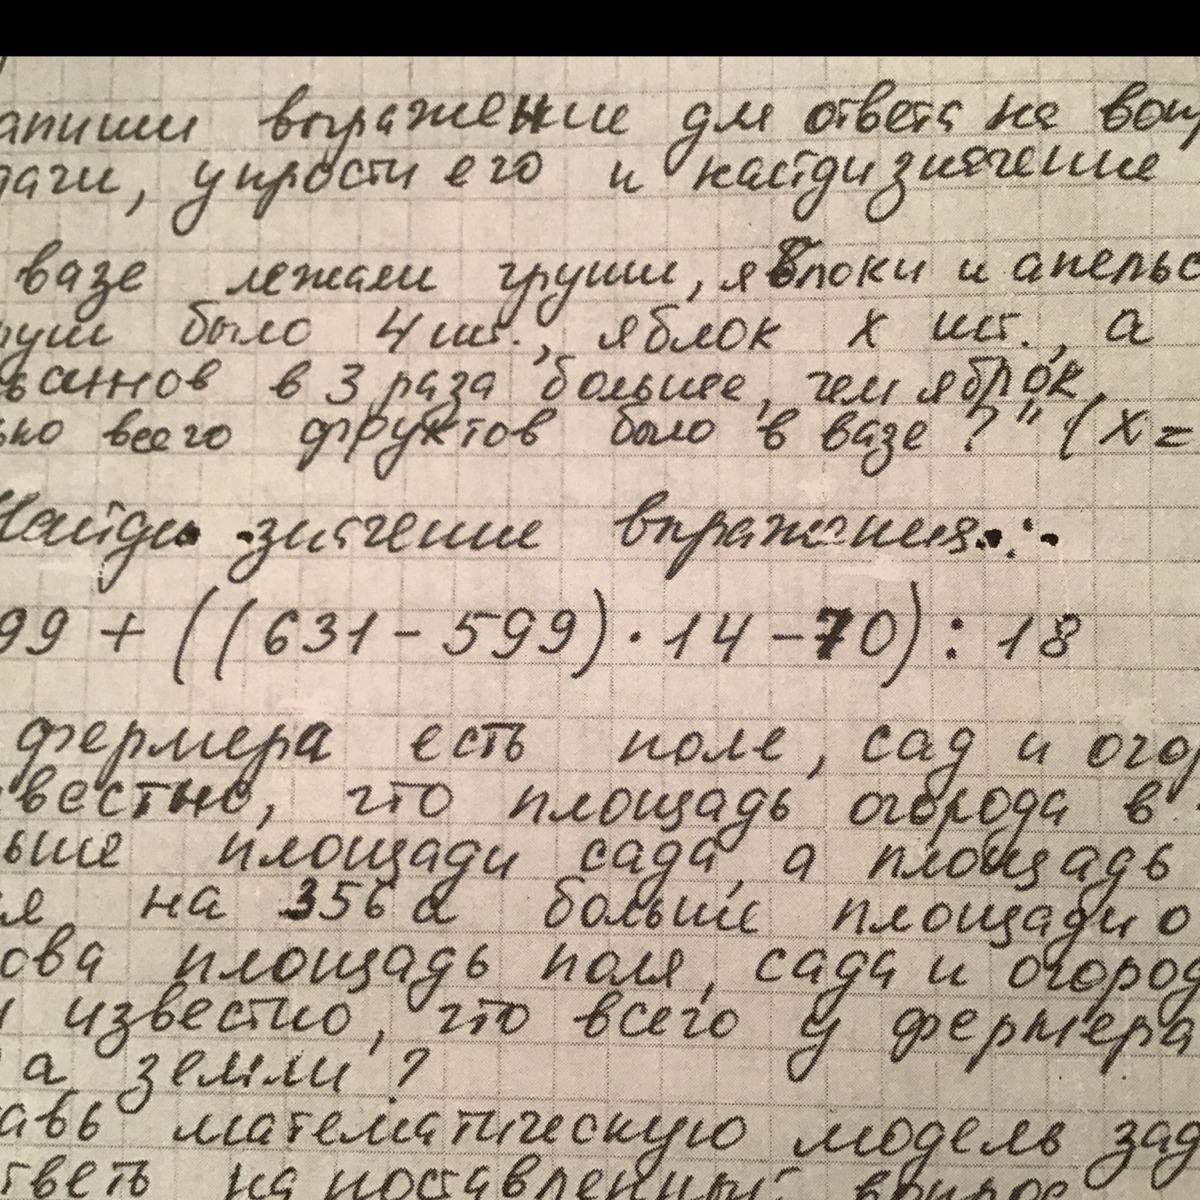 апиши выражение для ответа на вопр
дачи, упрости его и найди значение
вазе лежали груши, яблоки и апельс
руш было 4 шт., яблок x шт., а
ьсинов в 3 раза больше, чем яблок.
ько всего фруктов было в вазе?" (x =
Найди значение выражения:
99 + ((631 - 599) · 14 - 70) : 18
фермера есть поле, сад и огор
вестно, что площадь огорода в
ьше площади сада, а площадь
ля на 356 а больше площади о
ова площадь поля, сада и огород
и известно, что всего у фермера
а земли?
авь математическую модель зад
тветь на поставленный вопрос